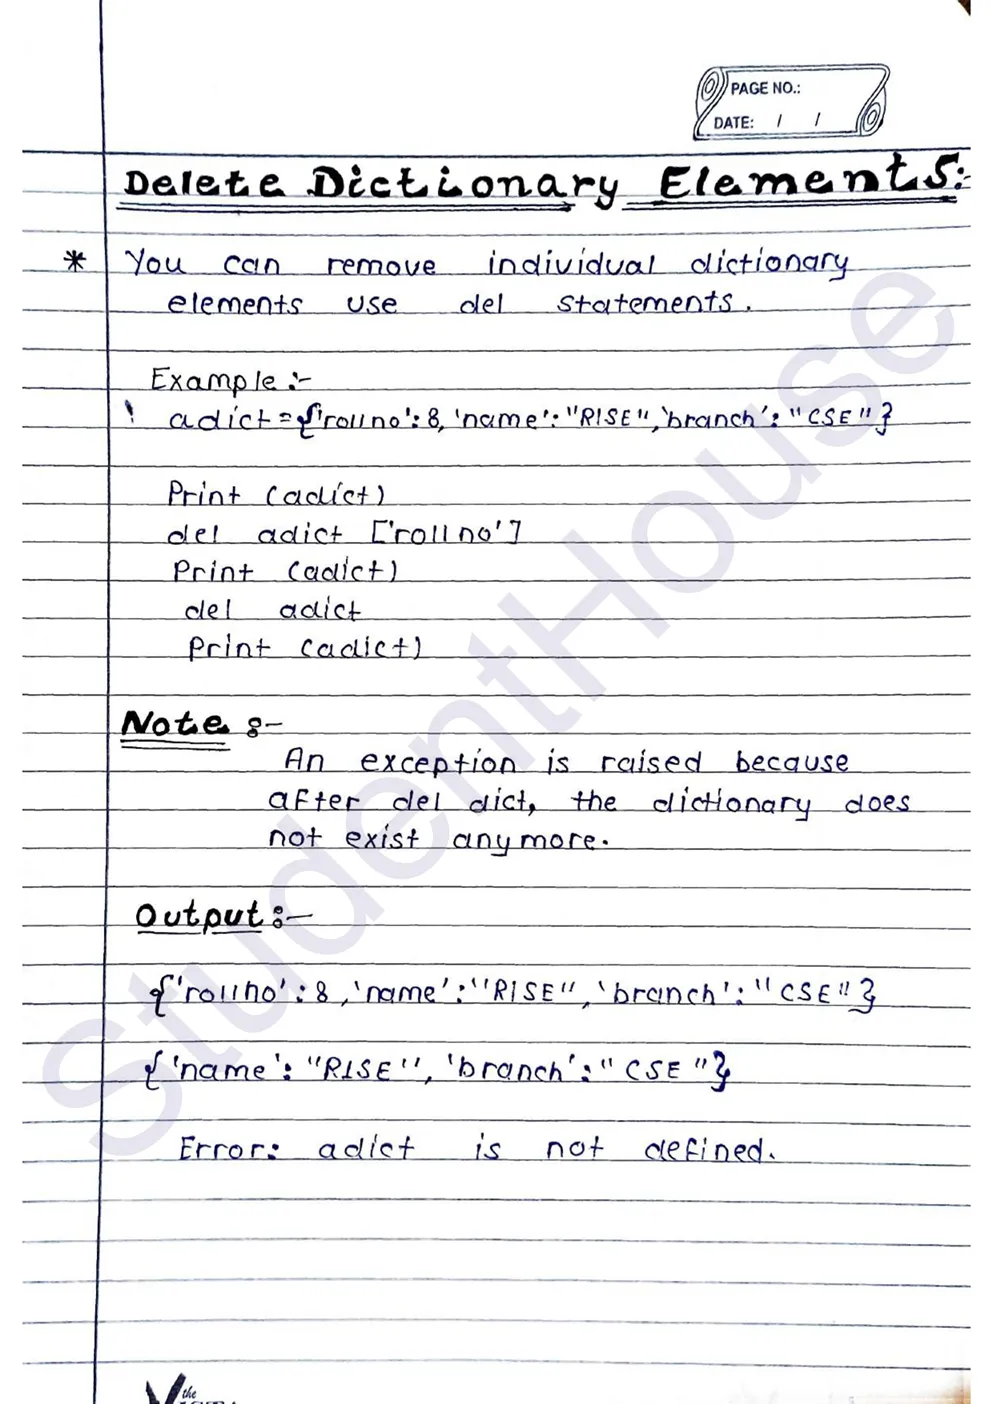 PAGE NO.:
DATE: / /
Delete Dictionary Elements:-
* You can remove individual dictionary
elements use del statements.
Example :-
adict = {'rollno': 8, 'name': "RISE", 'branch': "CSE"}
Print (adict)
del adict ['rollno']
Print (adict)
del adict
Print (adict)
Note :-
An exception is raised because
after del dict, the dictionary does
not exist anymore.
Output :-
{'rollno': 8, 'name': "RISE", 'branch': "CSE"}
{'name': "RISE", 'branch': "CSE"}
Error: adict is not defined.
StudentHouse
the